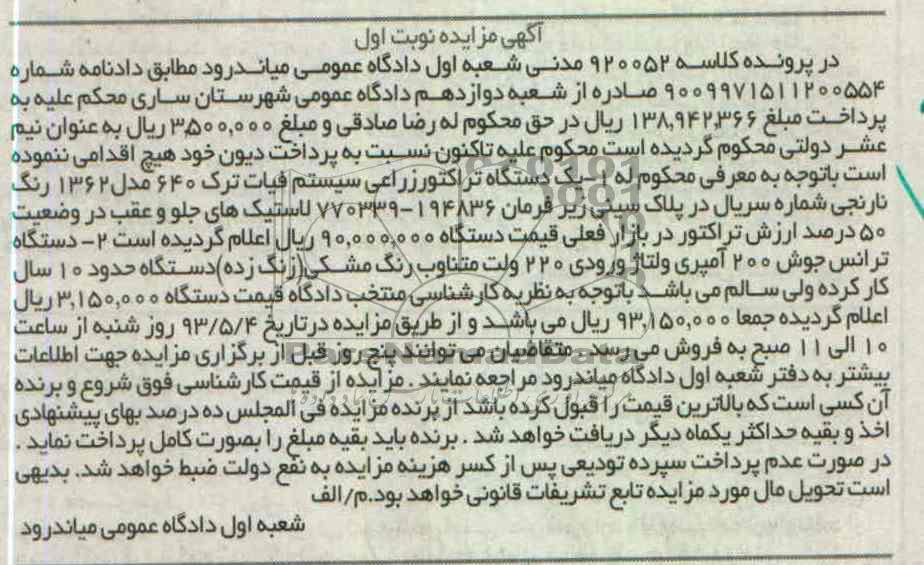 آگهی مزایده نوبت اول
در پرونده کلاسه ۹۲۰۰۵۲ مدنی شعبه اول دادگاه عمومی میاندرود مطابق دادنامه شماره
۹۰۰۹۹۷۱۵۱۱۲۰۰۵۵۴ صادره از شعبه دوازدهم دادگاه عمومی شهرستان ساری محکم علیه به
پرداخت مبلغ ۱۳۸,۹۴۲,۳۶۶ ریال در حق محکوم له رضا صادقی و مبلغ ۳,۵۰۰,۰۰۰ ریال به عنوان نیم
عشر دولتی محکوم گردیده است محکوم علیه تاکنون نسبت به پرداخت دیون خود هیچ اقدامی ننموده
است باتوجه به معرفی محکوم له ۱-یک دستگاه تراکتورزراعی سیستم فیات ترک ۶۴۰ مدل۱۳۶۲ رنگ
نارنجی شماره سریال در پلاک سینی زیر فرمان ۱۹۴۸۳۶-۷۷۰۳۳۹ لاستیک های جلو و عقب در وضعیت
۵۰ درصد ارزش تراکتور در بازار فعلی قیمت دستگاه ۹۰,۰۰۰,۰۰۰ ریال اعلام گردیده است ۲- دستگاه
ترانس جوش ۲۰۰ آمپری ولتاژ ورودی ۲۲۰ ولت متناوب رنگ مشکی(زنگ زده)دستگاه حدود ۱۰ سال
کار کرده ولی سالم می باشد باتوجه به نظریه کارشناسی منتخب دادگاه قیمت دستگاه ۳,۱۵۰,۰۰۰ ریال
اعلام گردیده جمعا ۹۳,۱۵۰,۰۰۰ ریال می باشد و از طریق مزایده درتاریخ ۹۳/۵/۴ روز شنبه از ساعت
۱۰ الی ۱۱ صبح به فروش می رسد . متقاضیان می توانند پنج روز قبل از برگزاری مزایده جهت اطلاعات
بیشتر به دفتر شعبه اول دادگاه میاندرود مراجعه نمایند . مزایده از قیمت کارشناسی فوق شروع و برنده
آن کسی است که بالاترین قیمت را قبول کرده باشد از برنده مزایده فی المجلس ده درصد بهای پیشنهادی
اخذ و بقیه حداکثر یکماه دیگر دریافت خواهد شد . برنده باید بقیه مبلغ را بصورت کامل پرداخت نماید .
در صورت عدم پرداخت سپرده تودیعی پس از کسر هزینه مزایده به نفع دولت ضبط خواهد شد. بدیهی
است تحویل مال مورد مزایده تابع تشریفات قانونی خواهد بود.م/الف
شعبه اول دادگاه عمومی میاندرود